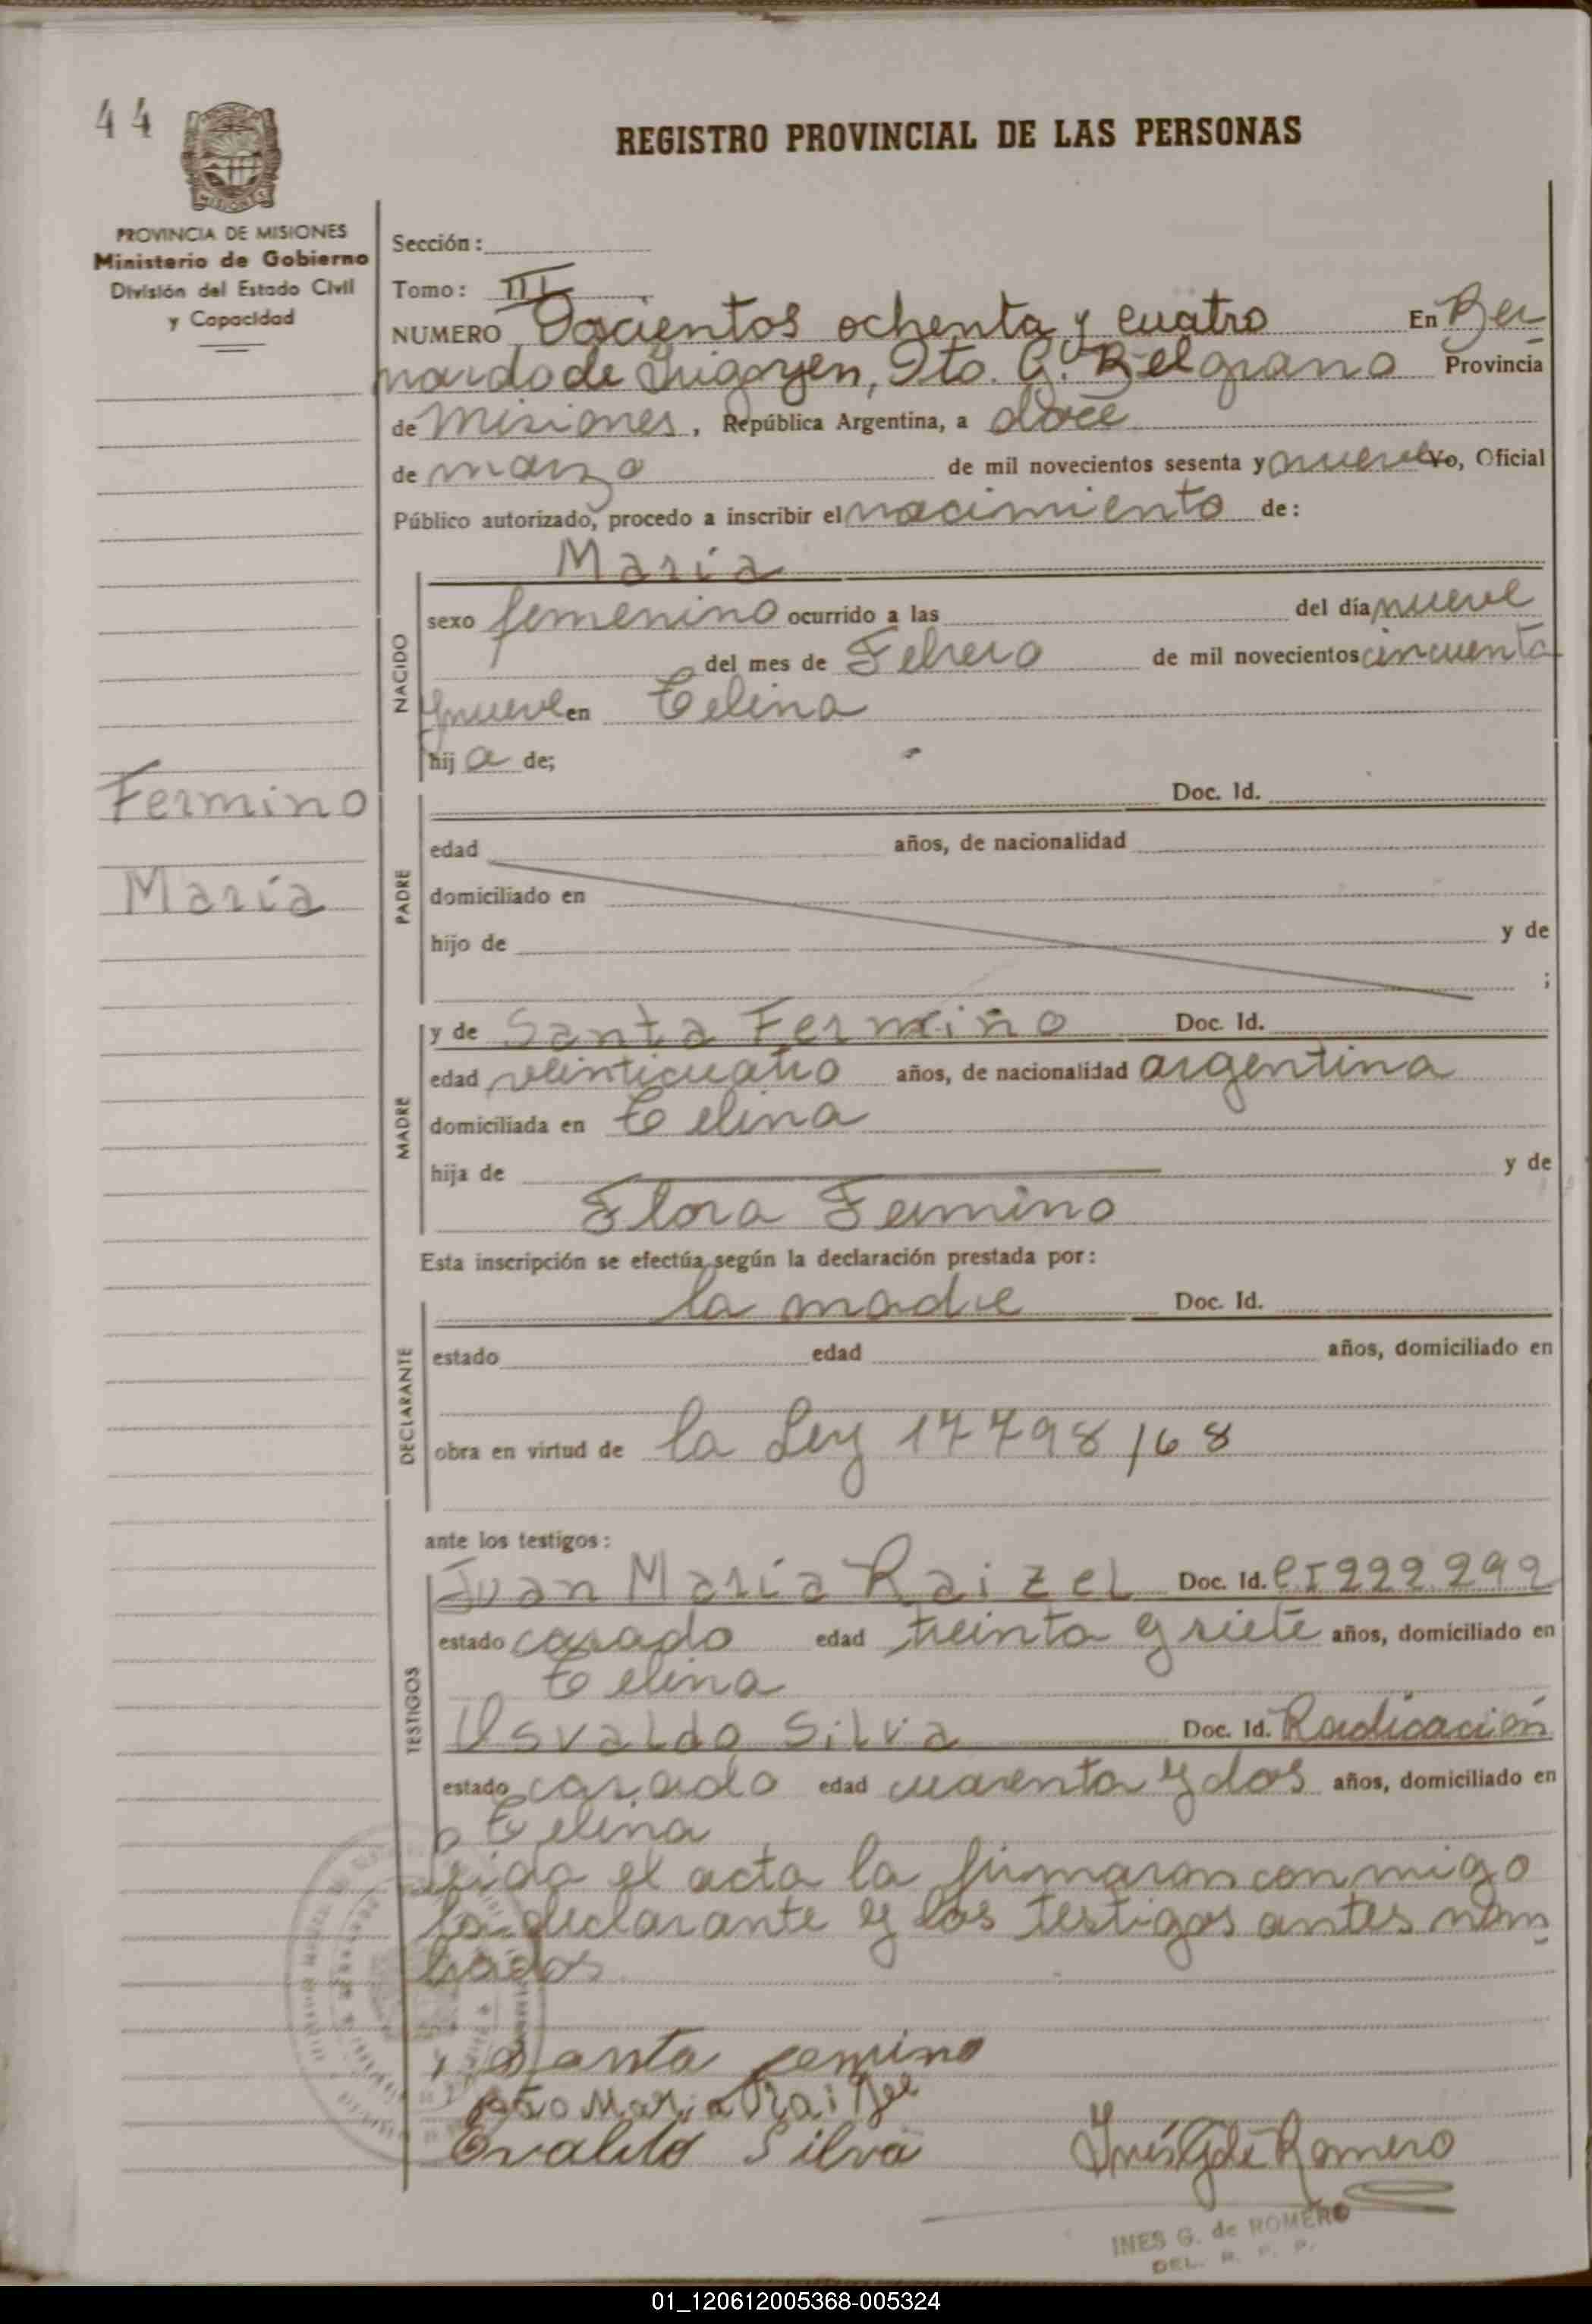 44
REGISTRO PROVINCIAL DE LAS PERSONAS
PROVINCIA DE MISIONES
Ministerio de Gobierno
División del Estado Civil
y Capacidad
Sección:
Tomo: III
NUMERO Doscientos ochenta y cuatro En Ber
nardo de Irigoyen, Dto. G. Belgrano Provincia
de Misiones, República Argentina, a doce
de marzo de mil novecientos sesenta y nueve Yo, Oficial
Público autorizado, procedo a inscribir el nacimiento de:
María
NACIDO
sexo femenino ocurrido a las del día nueve
del mes de Febrero de mil novecientos cincuenta
y nueve en Celina
hija de;
Fermino
María
PADRE
Doc. Id.
edad años, de nacionalidad
domiciliado en
hijo de y de
;
MADRE
y de Santa Fermino Doc. Id.
edad veinticuatro años, de nacionalidad argentina
domiciliada en Celina
hija de y de
Flora Fermino
Esta inscripción se efectúa según la declaración prestada por:
DECLARANTE
la madre Doc. Id.
estado edad años, domiciliado en
obra en virtud de la Ley 17798/68
ante los testigos:
TESTIGOS
Juan María Raizel Doc. Id. CI 222.292
estado casado edad treinta y siete años, domiciliado en
Celina
Osvaldo Silva Doc. Id. Radicación
estado casado edad cuarenta y dos años, domiciliado en
Celina
Leida el acta la firmaron conmigo
la declarante y los testigos antes nom
brados
Santa Femino
Maria
Silva
Inés G de Romero
INES G. de ROMERO
DEL. R. P. P.
01_120612005368-005324